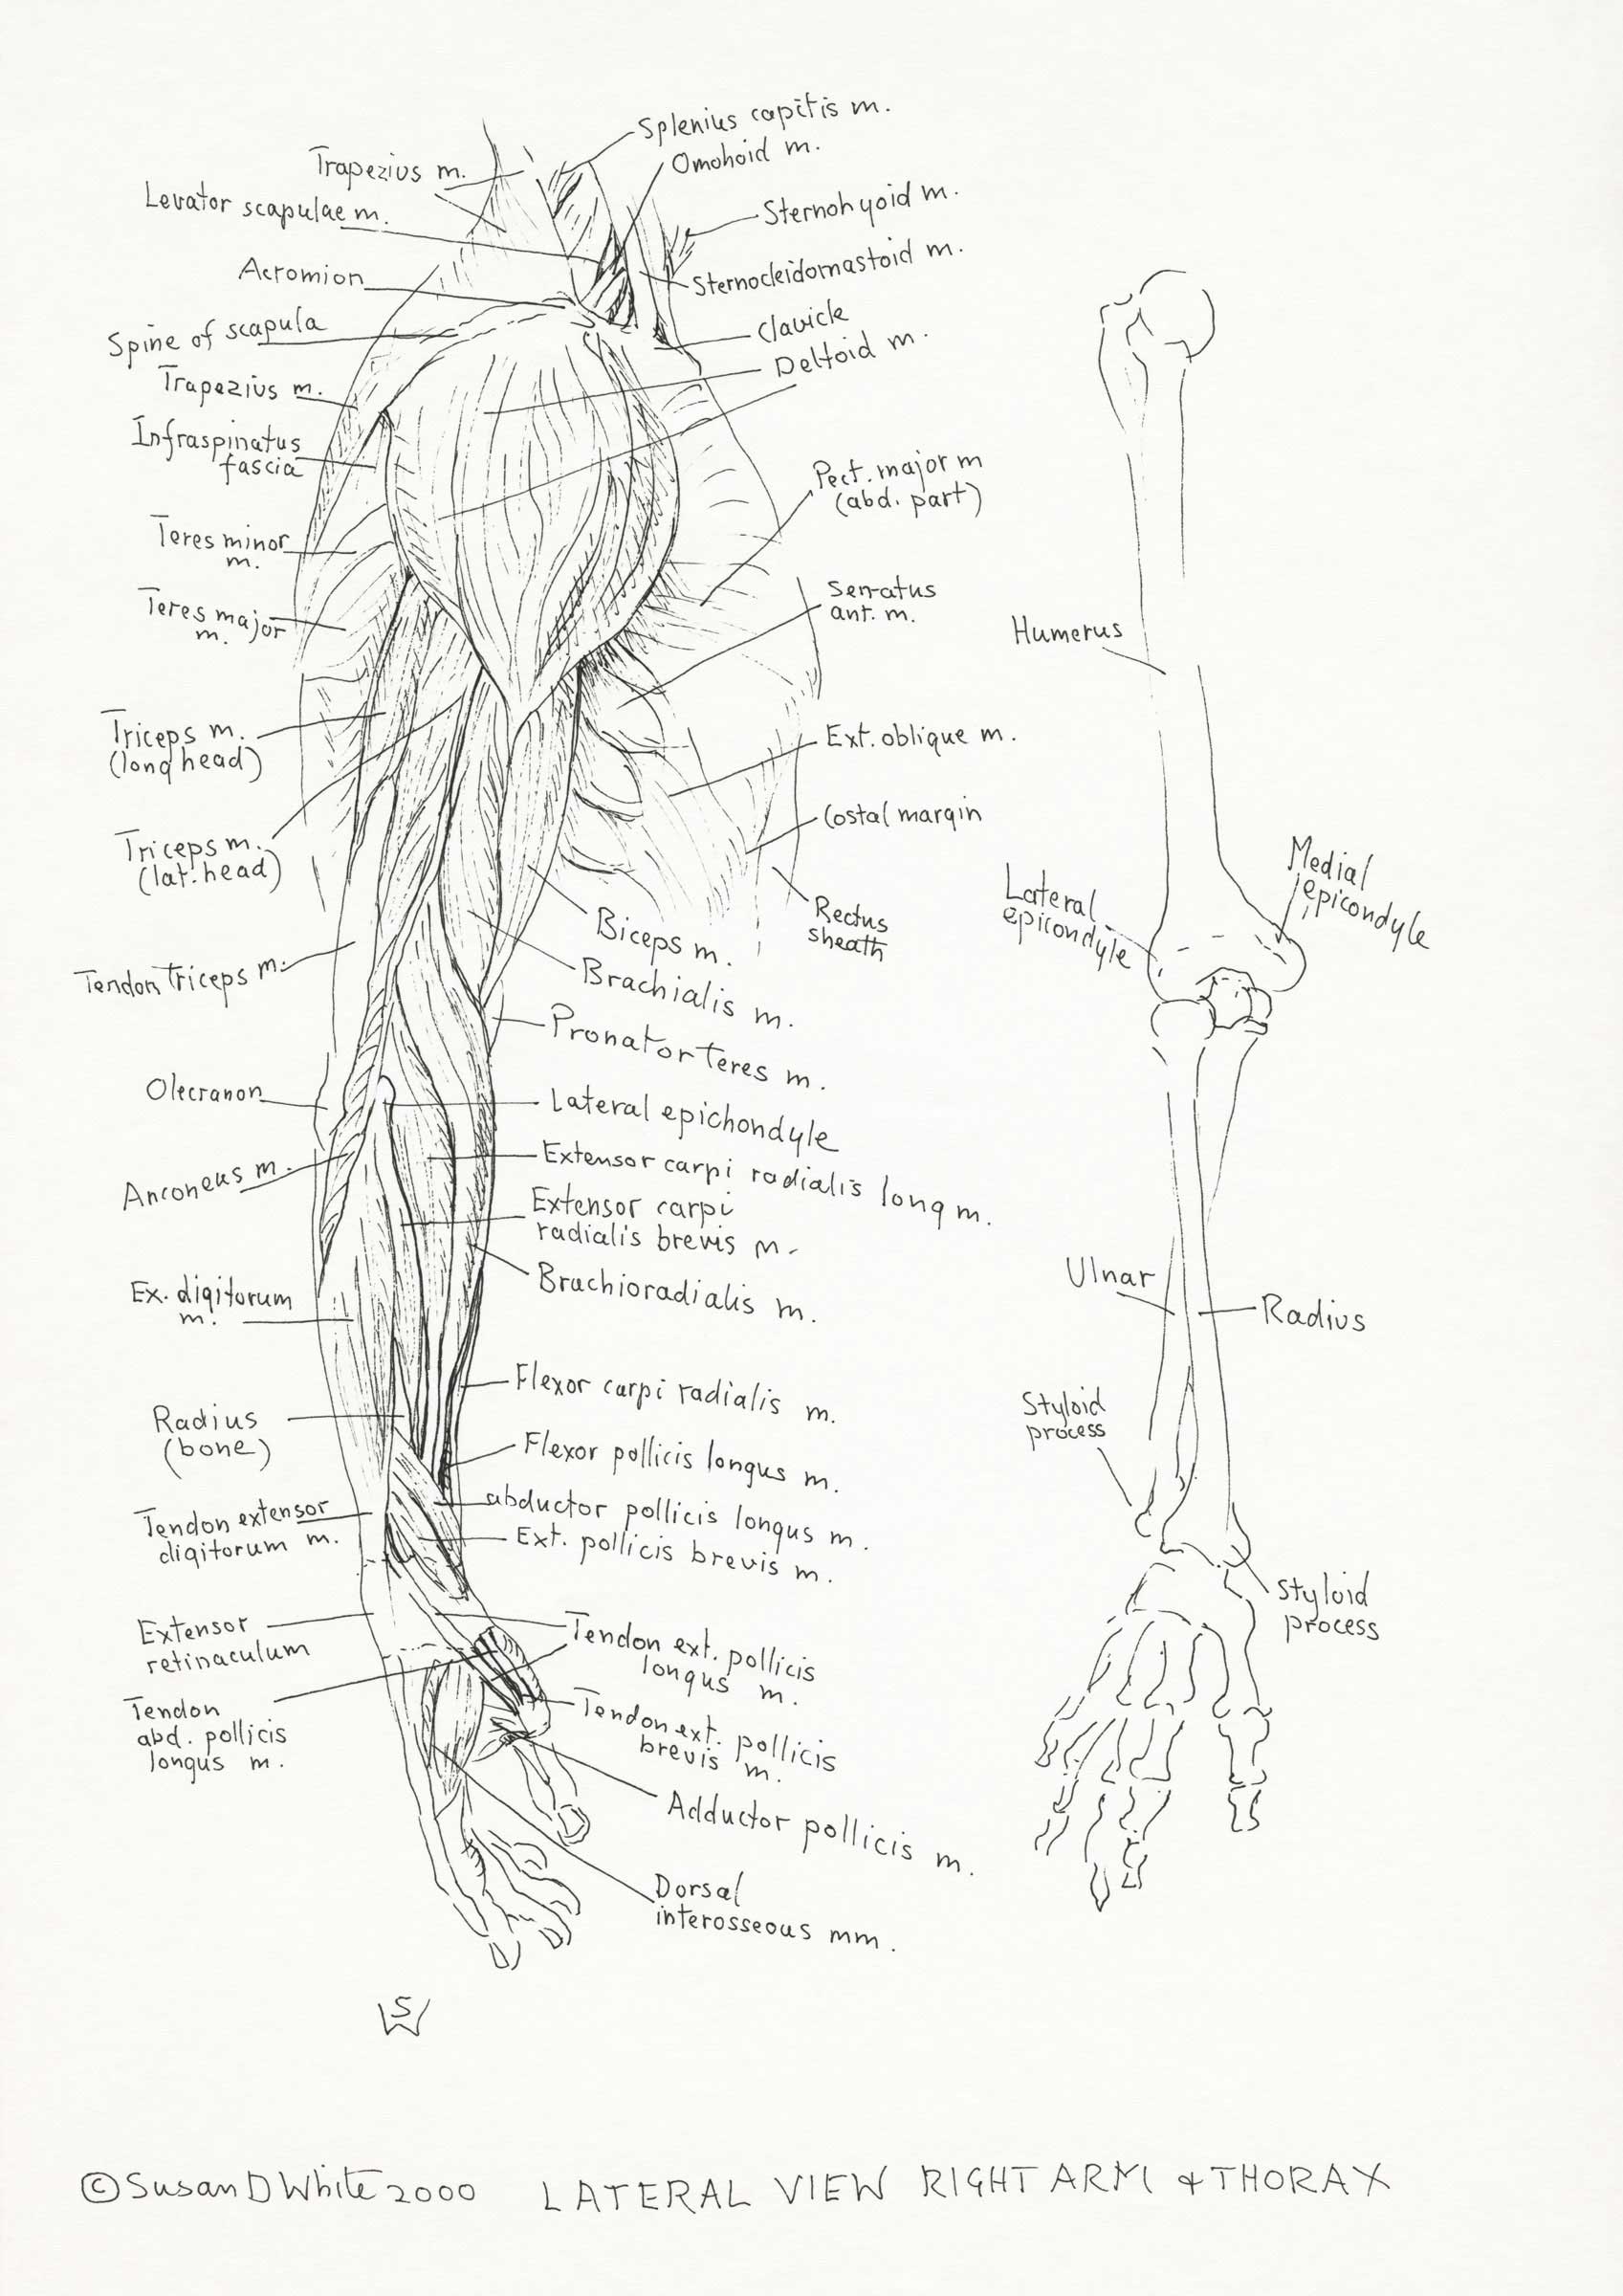 Splenius capitis m.
Omohoid m.
Trapezius m.
Levator scapulae m.
Sternohyoid m.
Sternocleidomastoid m.
Acromion
Clavicle
Spine of scapula
Deltoid m.
Trapezius m.
Infraspinatus
fascia
Pect. major m
(abd. part)
Teres minor
m.
Serratus
ant. m.
Teres major
m.
Triceps m.
(long head)
Ext. oblique m.
Costal margin
Triceps m.
(lat. head)
Rectus
sheath
Biceps m.
Brachialis m.
Tendon triceps m.
Pronator teres m.
Olecranon
Lateral epichondyle
Anconeus m.
Extensor carpi radialis long m.
Extensor carpi
radialis brevis m.
Brachioradialis m.
Ex. digitorum
m.
Flexor carpi radialis m.
Radius
(bone)
Flexor pollicis longus m.
abductor pollicis longus m.
Tendon extensor
digitorum m.
Ext. pollicis brevis m.
Extensor
retinaculum
Tendon ext. pollicis
longus m.
Tendon
abd. pollicis
longus m.
Tendon ext. pollicis
brevis m.
Adductor pollicis m.
Dorsal
interosseous mm.
Humerus
Lateral
epicondyle
Medial
epicondyle
Ulnar
Radius
Styloid
process
Styloid
process
SW
©Susan D White 2000 LATERAL VIEW RIGHT ARM & THORAX